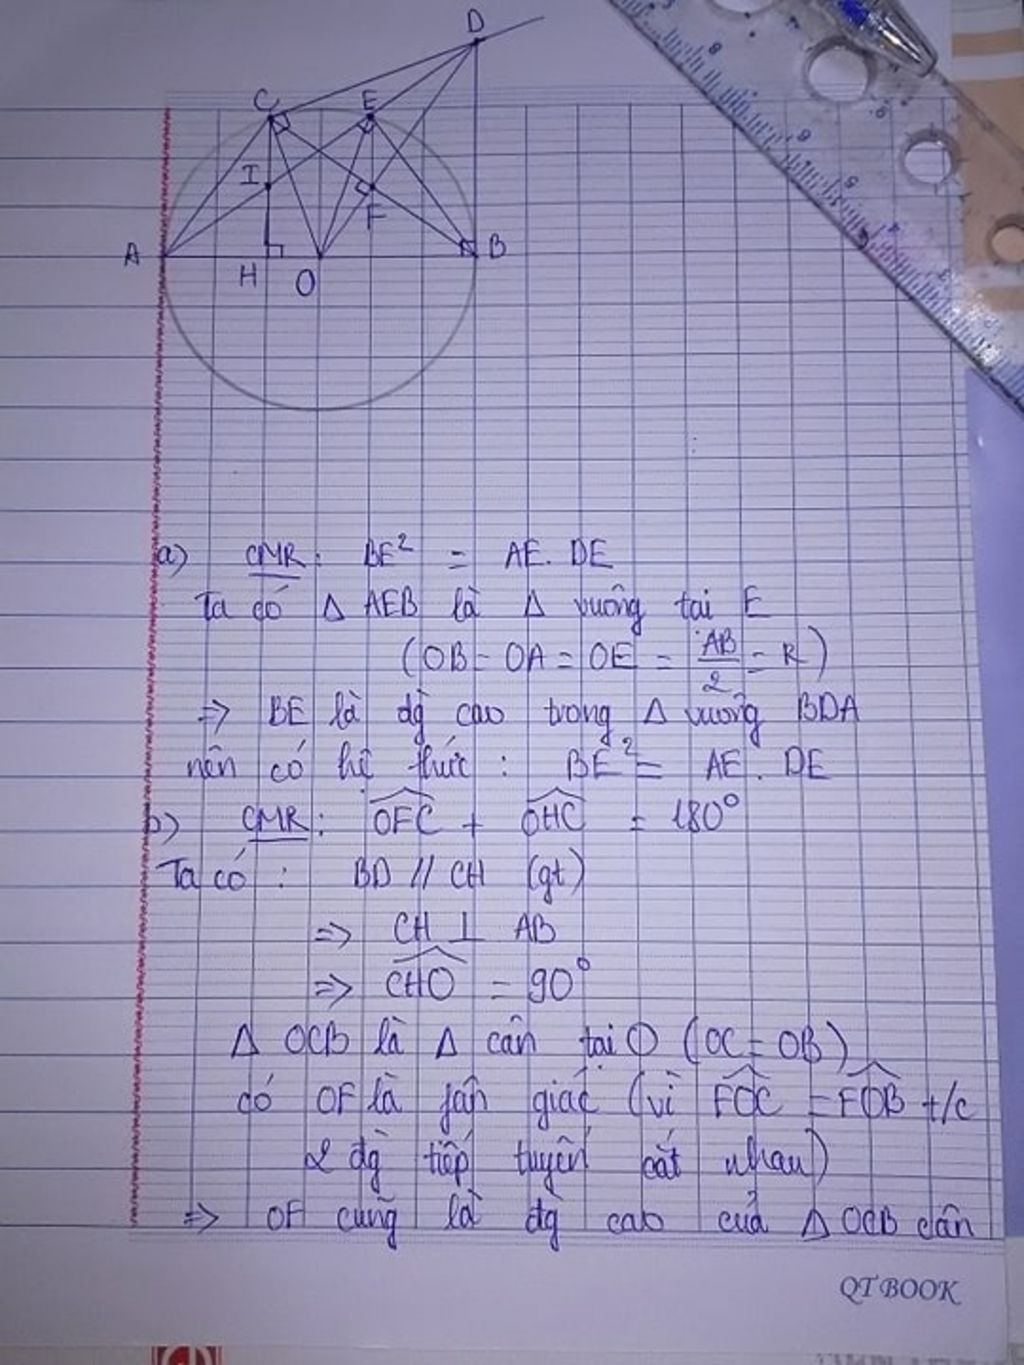 D
C E
I
F
A B
H O
a) CMR : BE² = AE. DE
Ta có Δ AEB là Δ vuông tại E
(OB = OA = OE = AB/2 = R)
=> BE là đg cao trong Δ vuông BDA
nên có hệ thức : BE² = AE . DE
b) CMR : OFC + OHC = 180°
Ta có : BD // CH (gt)
=> CH ⊥ AB
=> CHO = 90°
Δ OCB là Δ cân tại O (OC = OB)
có OF là fân giác (vì FOC = FOB t/c
2 đg tiếp tuyến cắt nhau)
=> OF cũng là đg cao của Δ OCB cân
QT BOOK